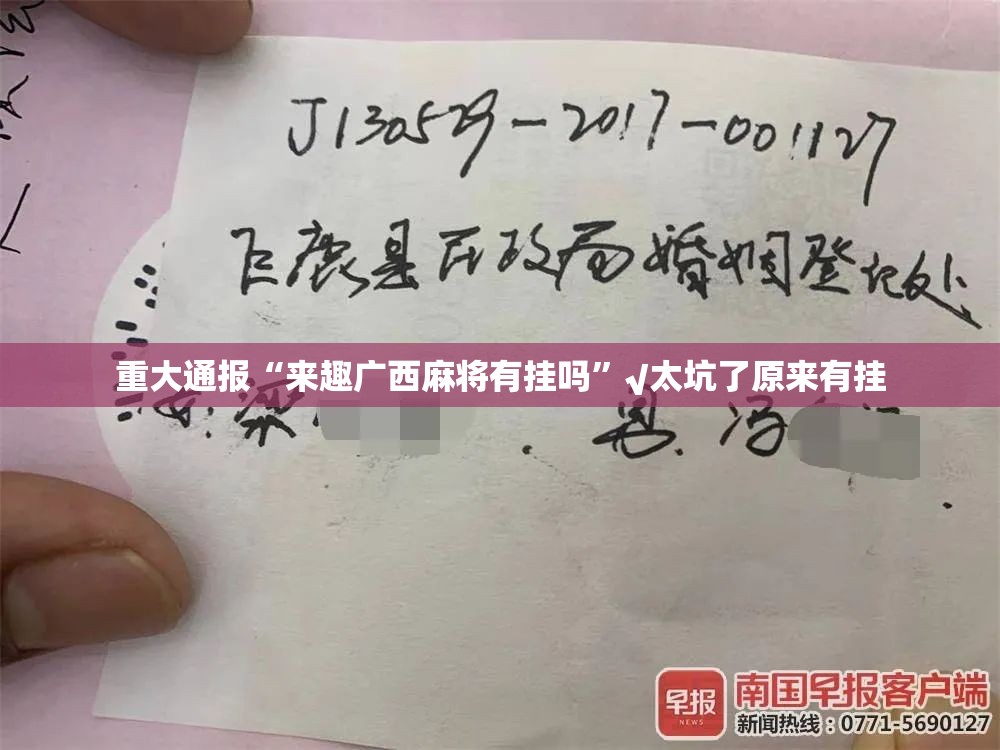 J130529-2017-001127
巨鹿县民政局婚姻登记处
重大通报“来趣广西麻将有挂吗”√太坑了原来有挂
女：梁
男：冯
早报
NEWS
南国早报客户端
新闻热线：0771-5690127